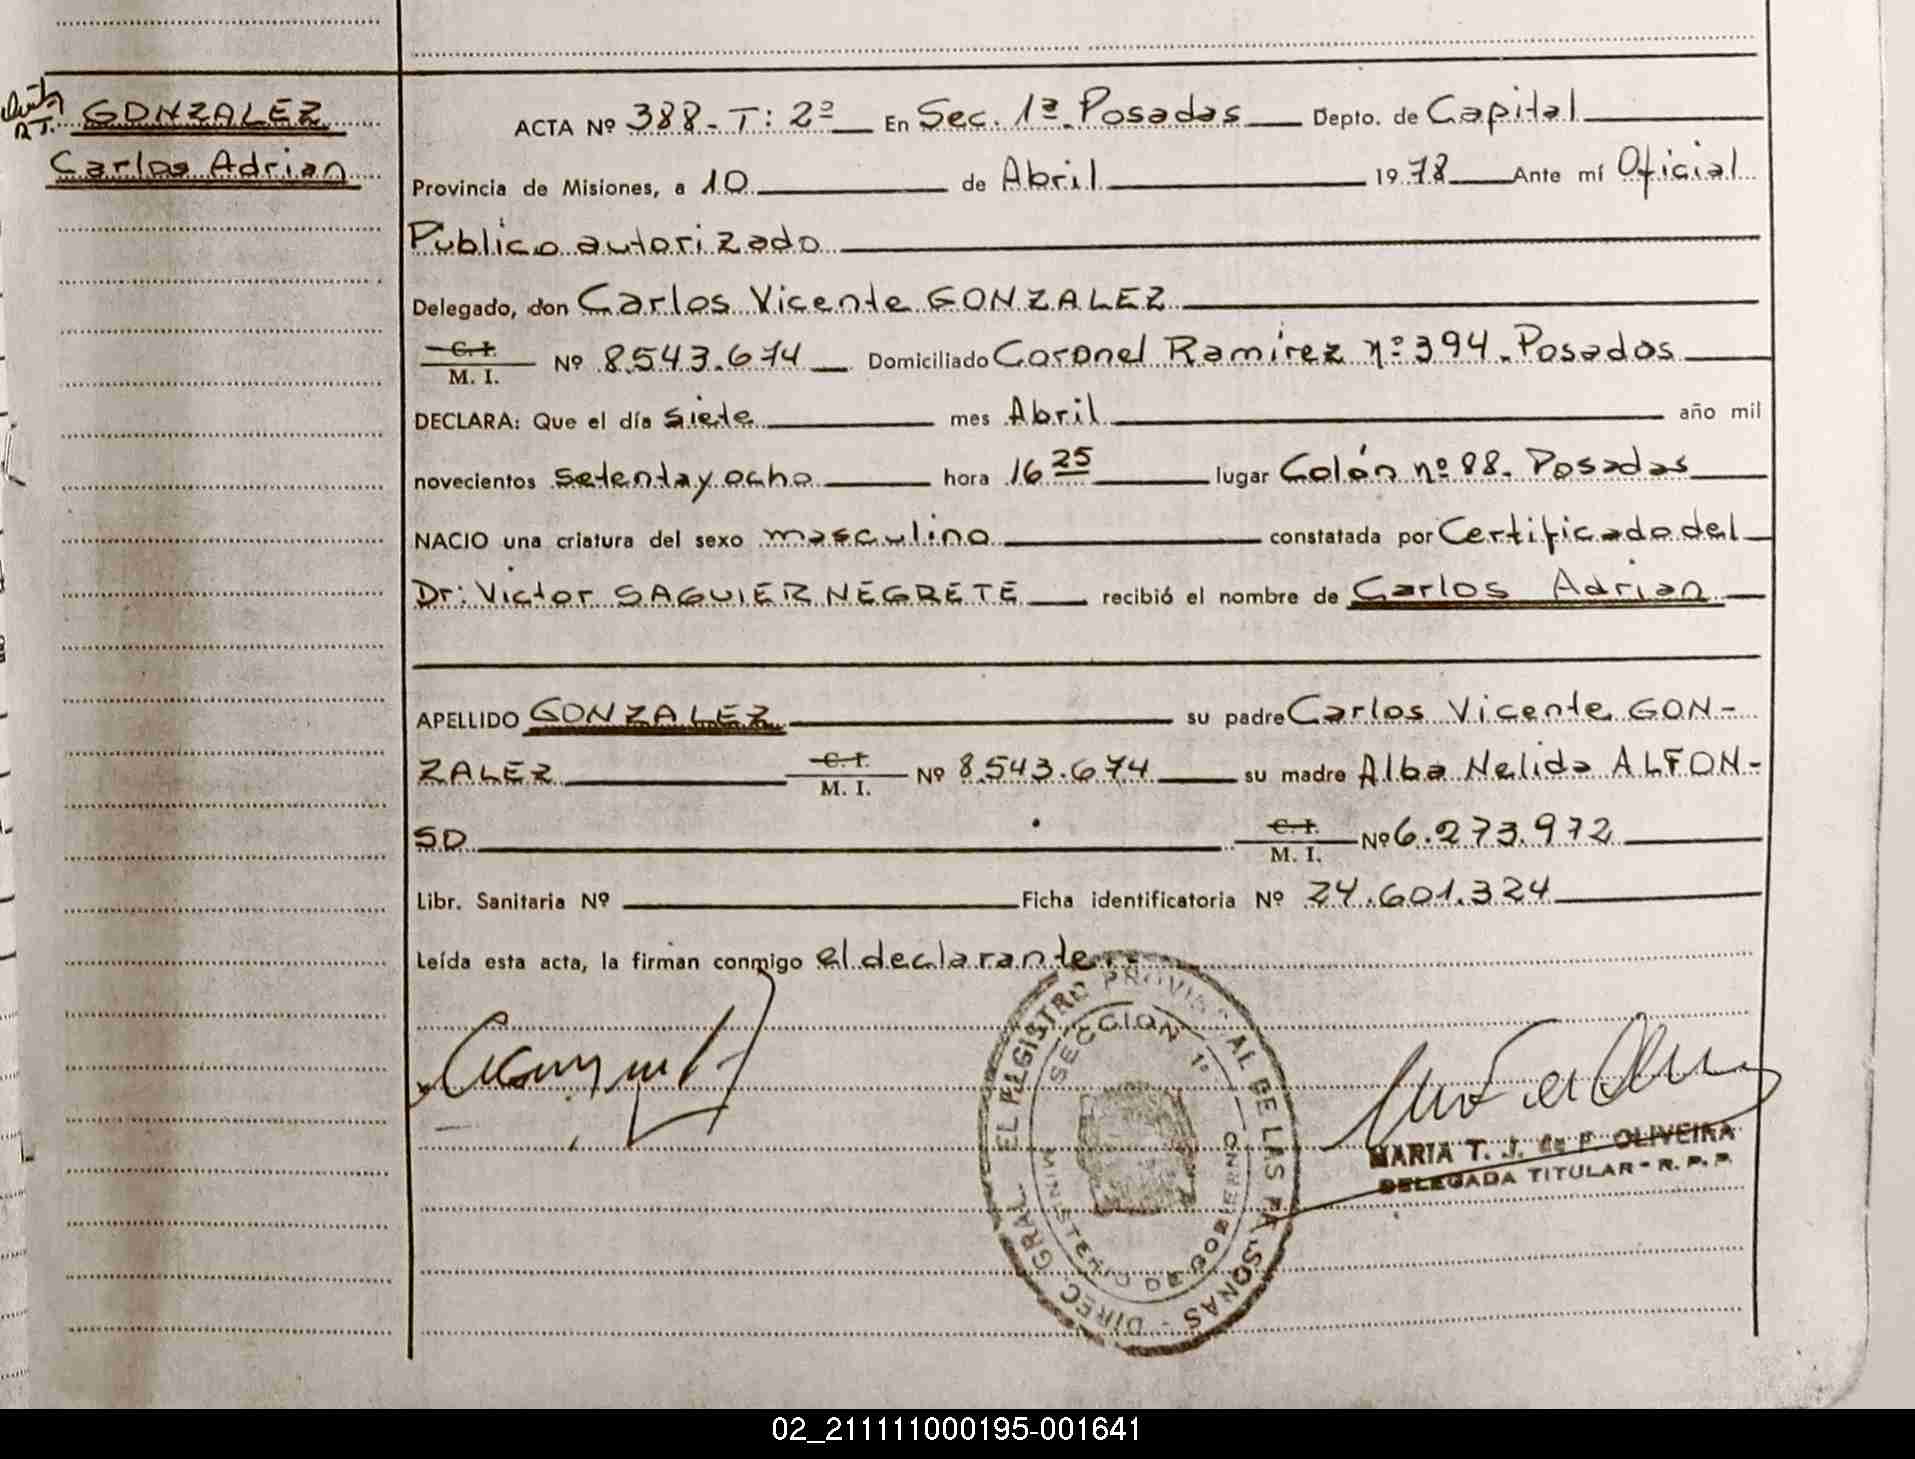 GONZALEZ
Carlos Adrian
ACTA Nº 388 - T: 2º En Sec. 1ª Posadas Depto. de Capital
Provincia de Misiones, a 10 de Abril 1978 Ante mí Oficial
Publico autorizado
Delegado, don Carlos Vicente GONZALEZ
C. I.
M. I. Nº 8.543.674 Domiciliado Coronel Ramirez nº 394 - Posadas
DECLARA: Que el día siete mes Abril año mil
novecientos setenta y ocho hora 16 25 lugar Colón nº 88 - Posadas
NACIO una criatura del sexo masculino constatada por Certificado del
Dr: Victor SAGUIER NEGRETE recibió el nombre de Carlos Adrian
APELLIDO GONZALEZ su padre Carlos Vicente GON-
ZALEZ C. I. M. I. Nº 8.543.674 su madre Alba Nelida ALFON-
SO C. I. M. I. Nº 6.273.972
Libr. Sanitaria Nº Ficha identificatoria Nº 24.601.324
Leída esta acta, la firman conmigo el declarante.-
DIREC. GRAL. EL REGISTRO PROVINCIAL DE LAS PERSONAS
SECCION 1º
MINISTERIO DE GOBIERNO
MARIA T. J. de F. OLIVEIRA
DELEGADA TITULAR - R. P. P.
02_211111000195-001641